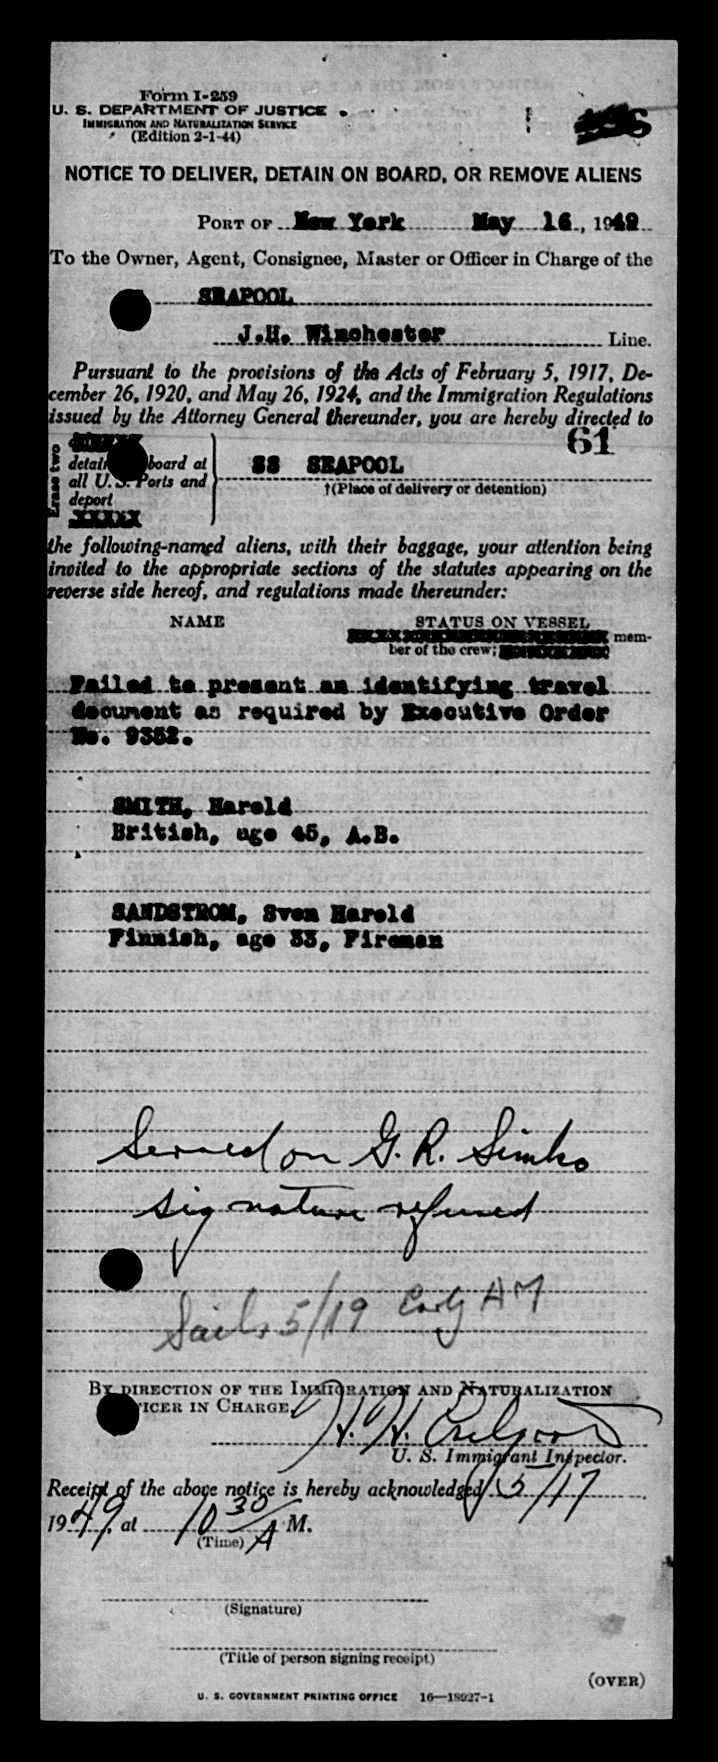 Form I-259
U. S. DEPARTMENT OF JUSTICE
IMMIGRATION AND NATURALIZATION SERVICE
(Edition 2-1-44)
NOTICE TO DELIVER, DETAIN ON BOARD, OR REMOVE ALIENS
PORT OF New York May 16, 1949
To the Owner, Agent, Consignee, Master or Officer in Charge of the
SEAPOOL
J.H. Winchester Line.
Pursuant to the provisions of the Acts of February 5, 1917, De-
cember 26, 1920, and May 26, 1924, and the Immigration Regulations
issued by the Attorney General thereunder, you are hereby directed to
61
Erase two
detain board at
all U. S. Ports and
deport
SS SEAPOOL
†(Place of delivery or detention)
the following-named aliens, with their baggage, your attention being
invited to the appropriate sections of the statutes appearing on the
reverse side hereof, and regulations made thereunder:
NAME STATUS ON VESSEL
mem-
ber of the crew;
Failed to present an identifying travel
document as required by Executive Order
No. 9352.
SMITH, Harold
British, age 45, A.B.
SANDSTROM, Sven Harold
Finnish, age 33, Fireman
Served on G. R. Simko
signature refused
Sails 5/19 Early AM
BY DIRECTION OF THE IMMIGRATION AND NATURALIZATION
ICER IN CHARGE.
H. H.
U. S. Immigrant Inspector.
Receipt of the above notice is hereby acknowledged 5/17
1949, at 10 30/A M.
(Time)
(Signature)
(Title of person signing receipt)
(OVER)
U. S. GOVERNMENT PRINTING OFFICE 16—18927-1